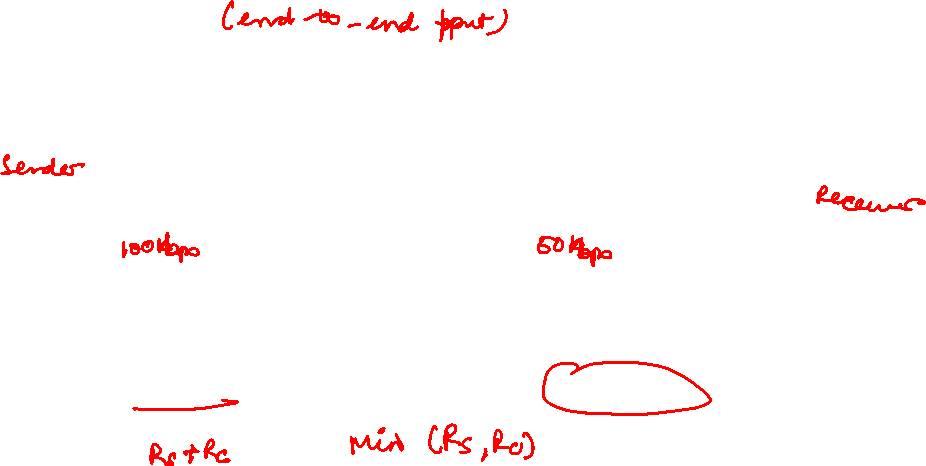 (end-to-end tput)
Sender
Receiver
100 Kbps
50 Kbps
Rs + Rc
Min (Rs, Rc)